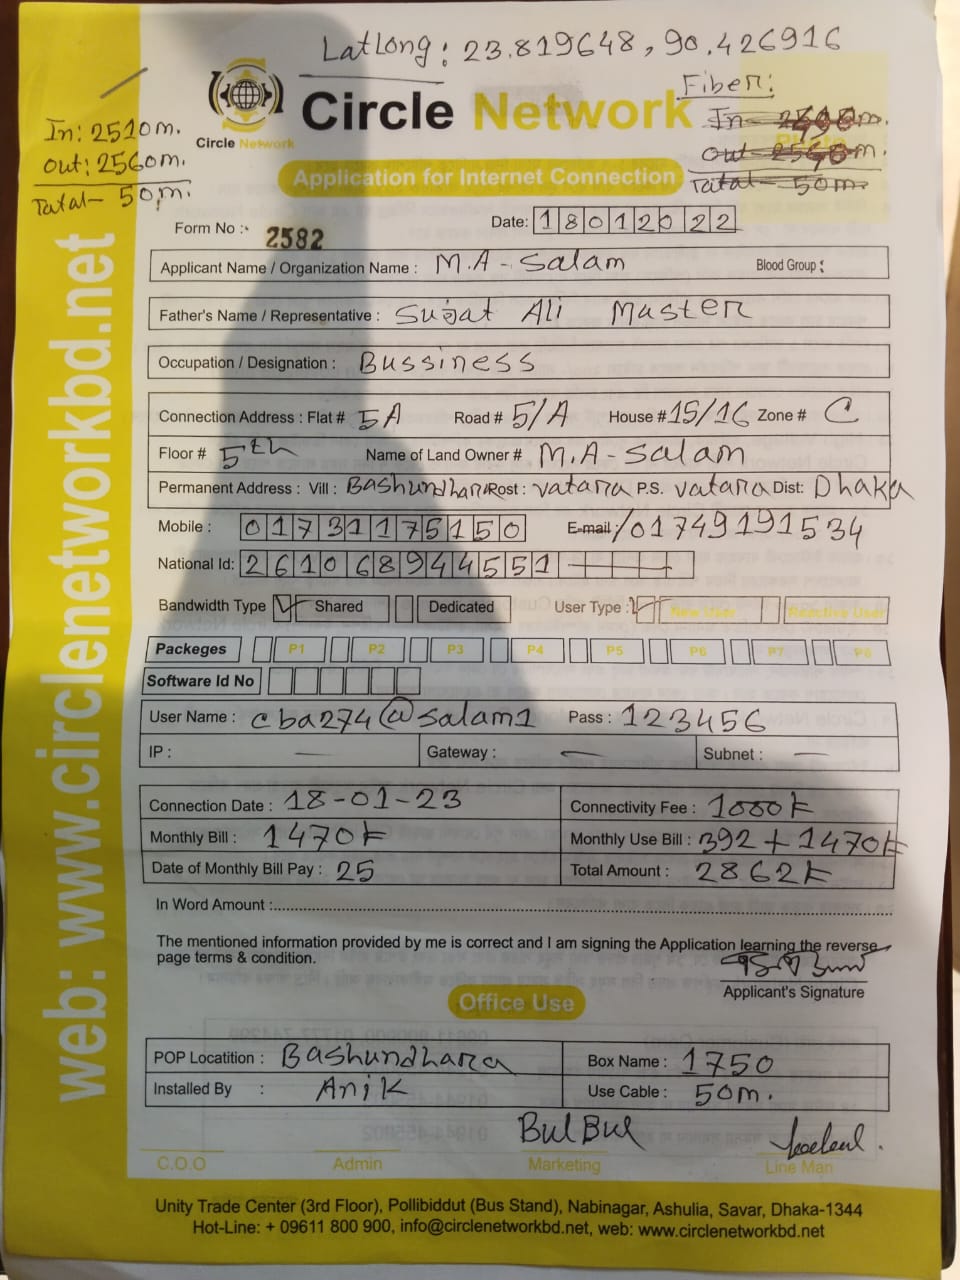 LatLong: 23.819648, 90.426916
Fiber:
In: 2510m.
Out: 2560m.
Tatal- 50m.
Circle Network
Circle Network
In-
Out-
Tatal- 50m.
Application for Internet Connection
Form No :- 2582
Date: 18012022
Applicant Name / Organization Name : M.A-Salam Blood Group :
Father's Name / Representative : Sujat Ali Master
Occupation / Designation : Bussiness
Connection Address : Flat # 5A Road # 5/A House # 15/16 Zone # C
Floor # 5th Name of Land Owner # M.A-Salam
Permanent Address : Vill : Bashundhara Post : vatara P.S. vatara Dist: Dhaka
Mobile : 01731175150 E-mail:/01749191534
National Id: 261068944551
Bandwidth Type Shared Dedicated User Type : New User Reactive User
Packeges P1 P2 P3 P4 P5 P6 P7 P8
Software Id No
User Name : cba274@salam1 Pass : 123456
IP : — Gateway : — Subnet : —
Connection Date : 18-01-23 Connectivity Fee : 1000k
Monthly Bill : 1470k Monthly Use Bill : 392 + 1470k
Date of Monthly Bill Pay : 25 Total Amount : 2862k
In Word Amount :
The mentioned information provided by me is correct and I am signing the Application learning the reverse
page terms & condition.
Applicant's Signature
Office Use
POP Locatition : Bashundhara Box Name : 1750
Installed By : Anik Use Cable : 50m.
BulBul
C.O.O Admin Marketing Line Man
Unity Trade Center (3rd Floor), Pollibiddut (Bus Stand), Nabinagar, Ashulia, Savar, Dhaka-1344
Hot-Line: + 09611 800 900, info@circlenetworkbd.net, web: www.circlenetworkbd.net
web: www.circlenetworkbd.net